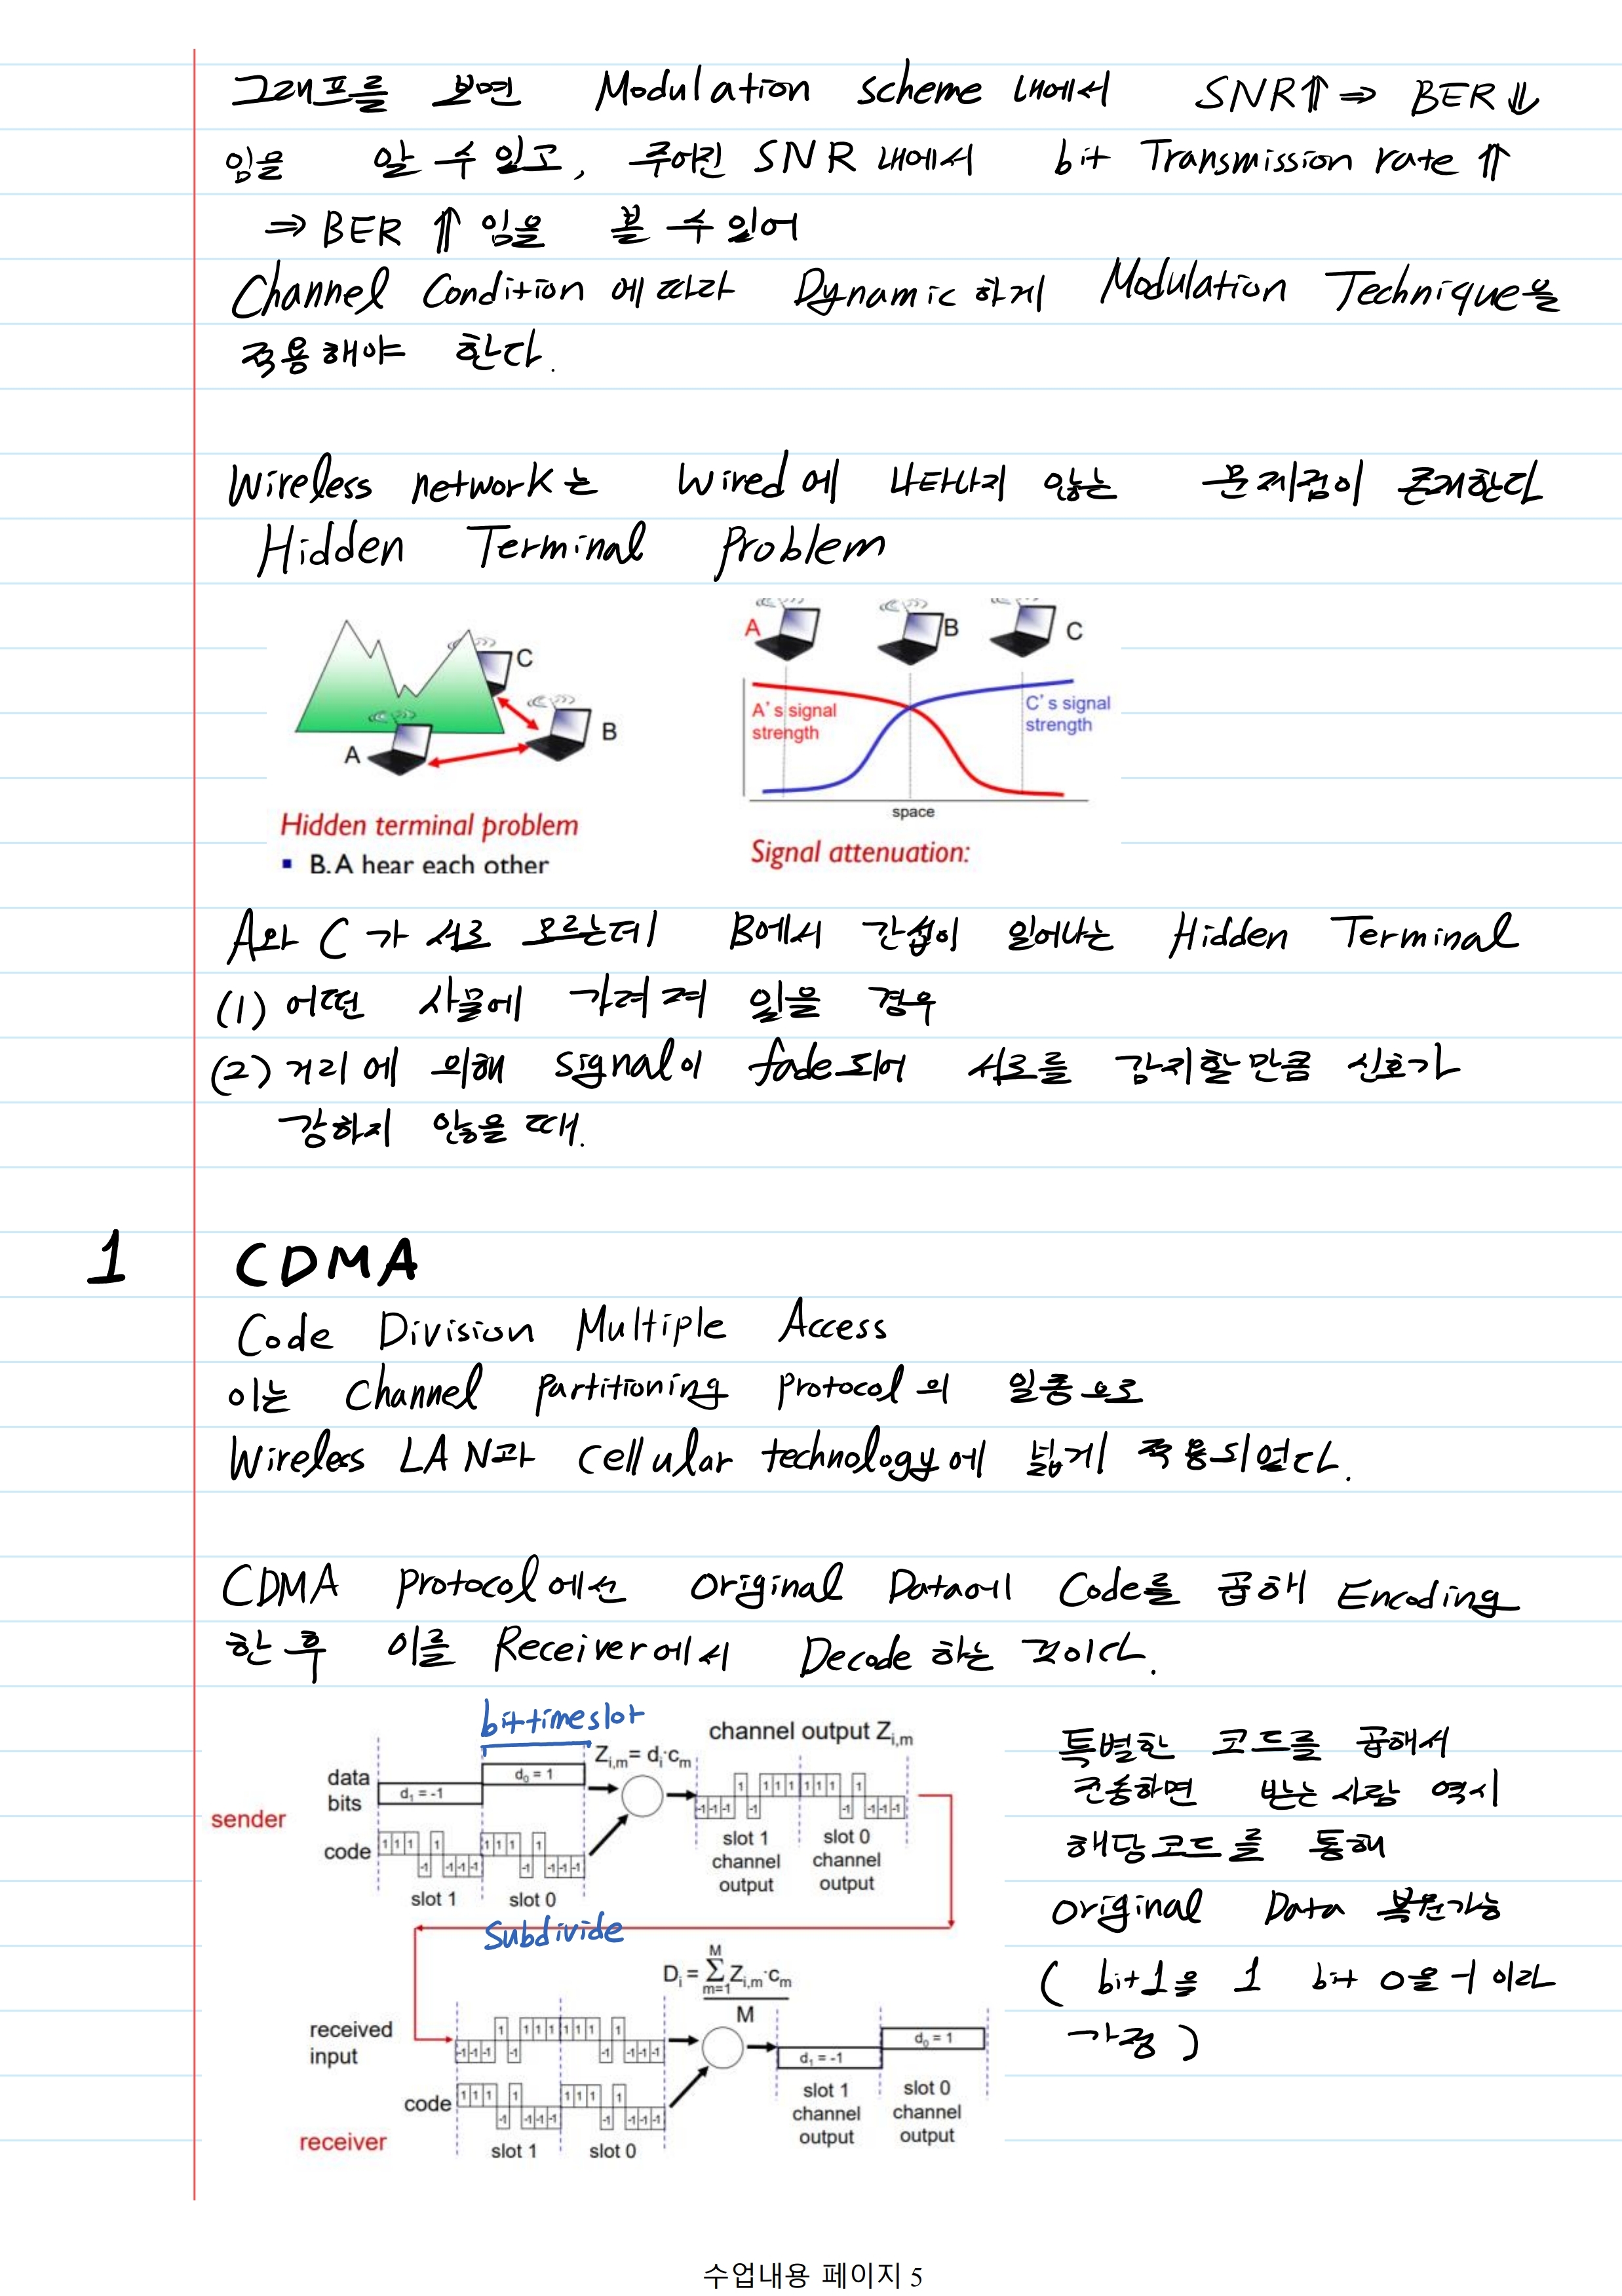 그래프를 보면 Modulation scheme 내에서 SNR⇑ ⇒ BER⇓
임을 알 수 있고, 주어진 SNR 내에서 bit Transmission rate ⇑
⇒ BER ⇑ 임을 볼 수 있어
Channel Condition에 따라 Dynamic하게 Modulation Technique을
적용해야 한다.
Wireless network는 Wired에 나타나지 않는 문제점이 존재한다
Hidden Terminal Problem
C
B
A
Hidden terminal problem
▪ B,A hear each other
A
B
C
A's signal
strength
C's signal
strength
space
Signal attenuation:
A와 C가 서로 모르는데 B에서 간섭이 일어나는 Hidden Terminal
(1) 어떤 사물에 가려져 있을 경우
(2) 거리에 의해 signal이 fade되어 서로를 감지할만큼 신호가
강하지 않을 때.
1 CDMA
Code Division Multiple Access
이는 Channel partitioning protocol의 일종으로
Wireless LAN과 cellular technology에 넓게 적용되었다.
CDMA protocol에선 Original Data에 Code를 곱해 Encoding
한 후 이를 Receiver에서 Decode 하는 것이다.
bit time slot
channel output Zi,m
Zi,m= di·cm
data
bits
d1 = -1
d0 = 1
sender
code
1 1 1 -1 1 -1 -1 -1
1 1 1 -1 1 -1 -1 -1
slot 1
slot 0
-1 -1 -1 1 -1 1 1 1
1 1 1 -1 1 -1 -1 -1
slot 1
channel
output
slot 0
channel
output
Subdivide
Di = Σ Zi,m·cm
m=1
M
M
received
input
-1 -1 -1 1 -1 1 1 1
1 1 1 -1 1 -1 -1 -1
code
1 1 1 -1 1 -1 -1 -1
1 1 1 -1 1 -1 -1 -1
slot 1
slot 0
receiver
d1 = -1
d0 = 1
slot 1
channel
output
slot 0
channel
output
특별한 코드를 곱해서
전송하면 받는 사람 역시
해당 코드를 통해
original Data 복원가능
( bit 1을 1 bit 0을 -1 이라
가정 )
수업내용 페이지 5